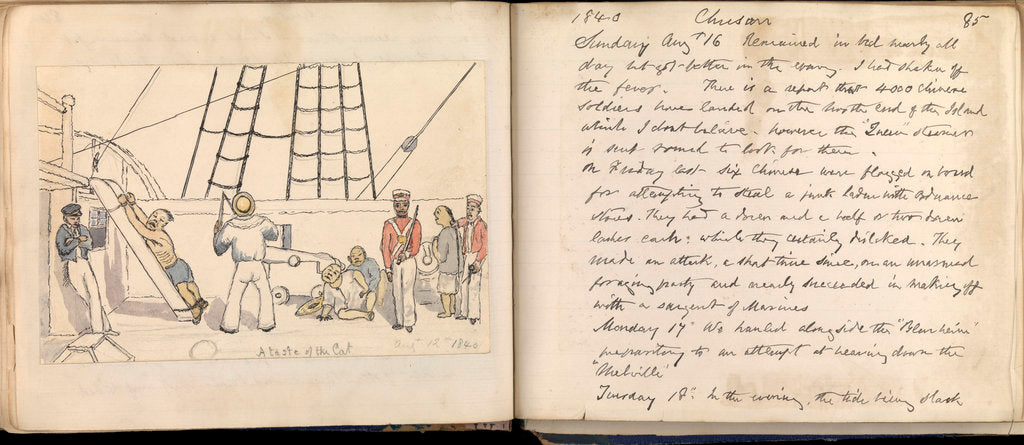 A taste of the Cat
Aug 12th 1840
1840 Chusan 85
Sunday Augt 16 Remained in bed nearly all
day but got better in the evening. I had shaken off
the fever. There is a report that 4000 Chinese
soldiers have landed on the North End of the Island
which I dont believe. however the "Queen" steamer
is sent round to look for them.
On Friday last six Chinese were flogged on board
for attempting to steal a junk laden with Ordnance
stores. They had a dozen and a half or two dozen
lashes each: which they certainly disliked. They
made an attack, a short time since, on an unarmed
foraging party and nearly succeeded in making off
with a sargent of Marines
Monday 17th We hauled alongside the "Blenheim"
preparatory to an attempt at heaving down the
"Melville"
Tuesday 18th In the evening, the tide being slack